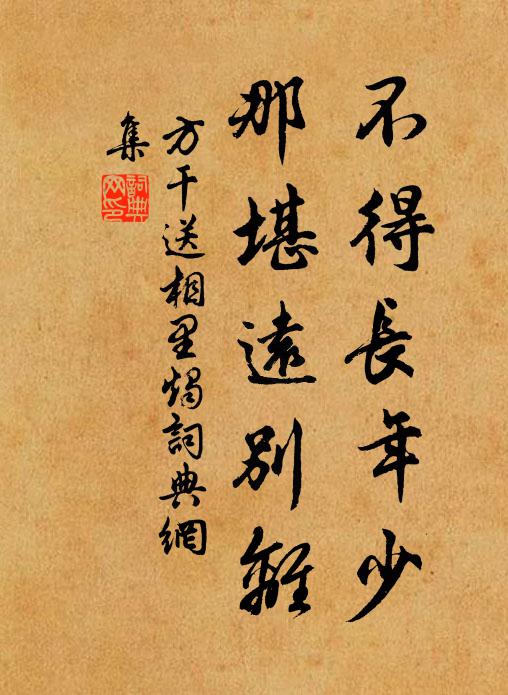 不得長年少
那堪遠別離
方干送相里燭詞典網
集
詞典
网印